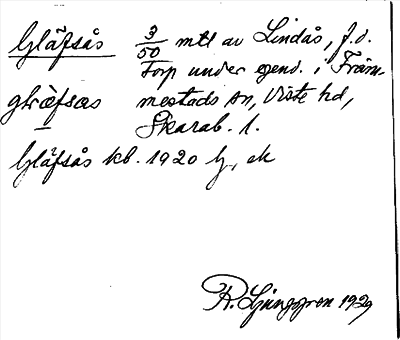 Gläfsås 3/50 mtl av Lindås, f.d.
Torp under egend. i Främ-
glræ̀fsas mestads sn, Viste hd,
Skarab. l.
Gläfsås kb. 1920 lj, ek
R. Ljunggren 1929